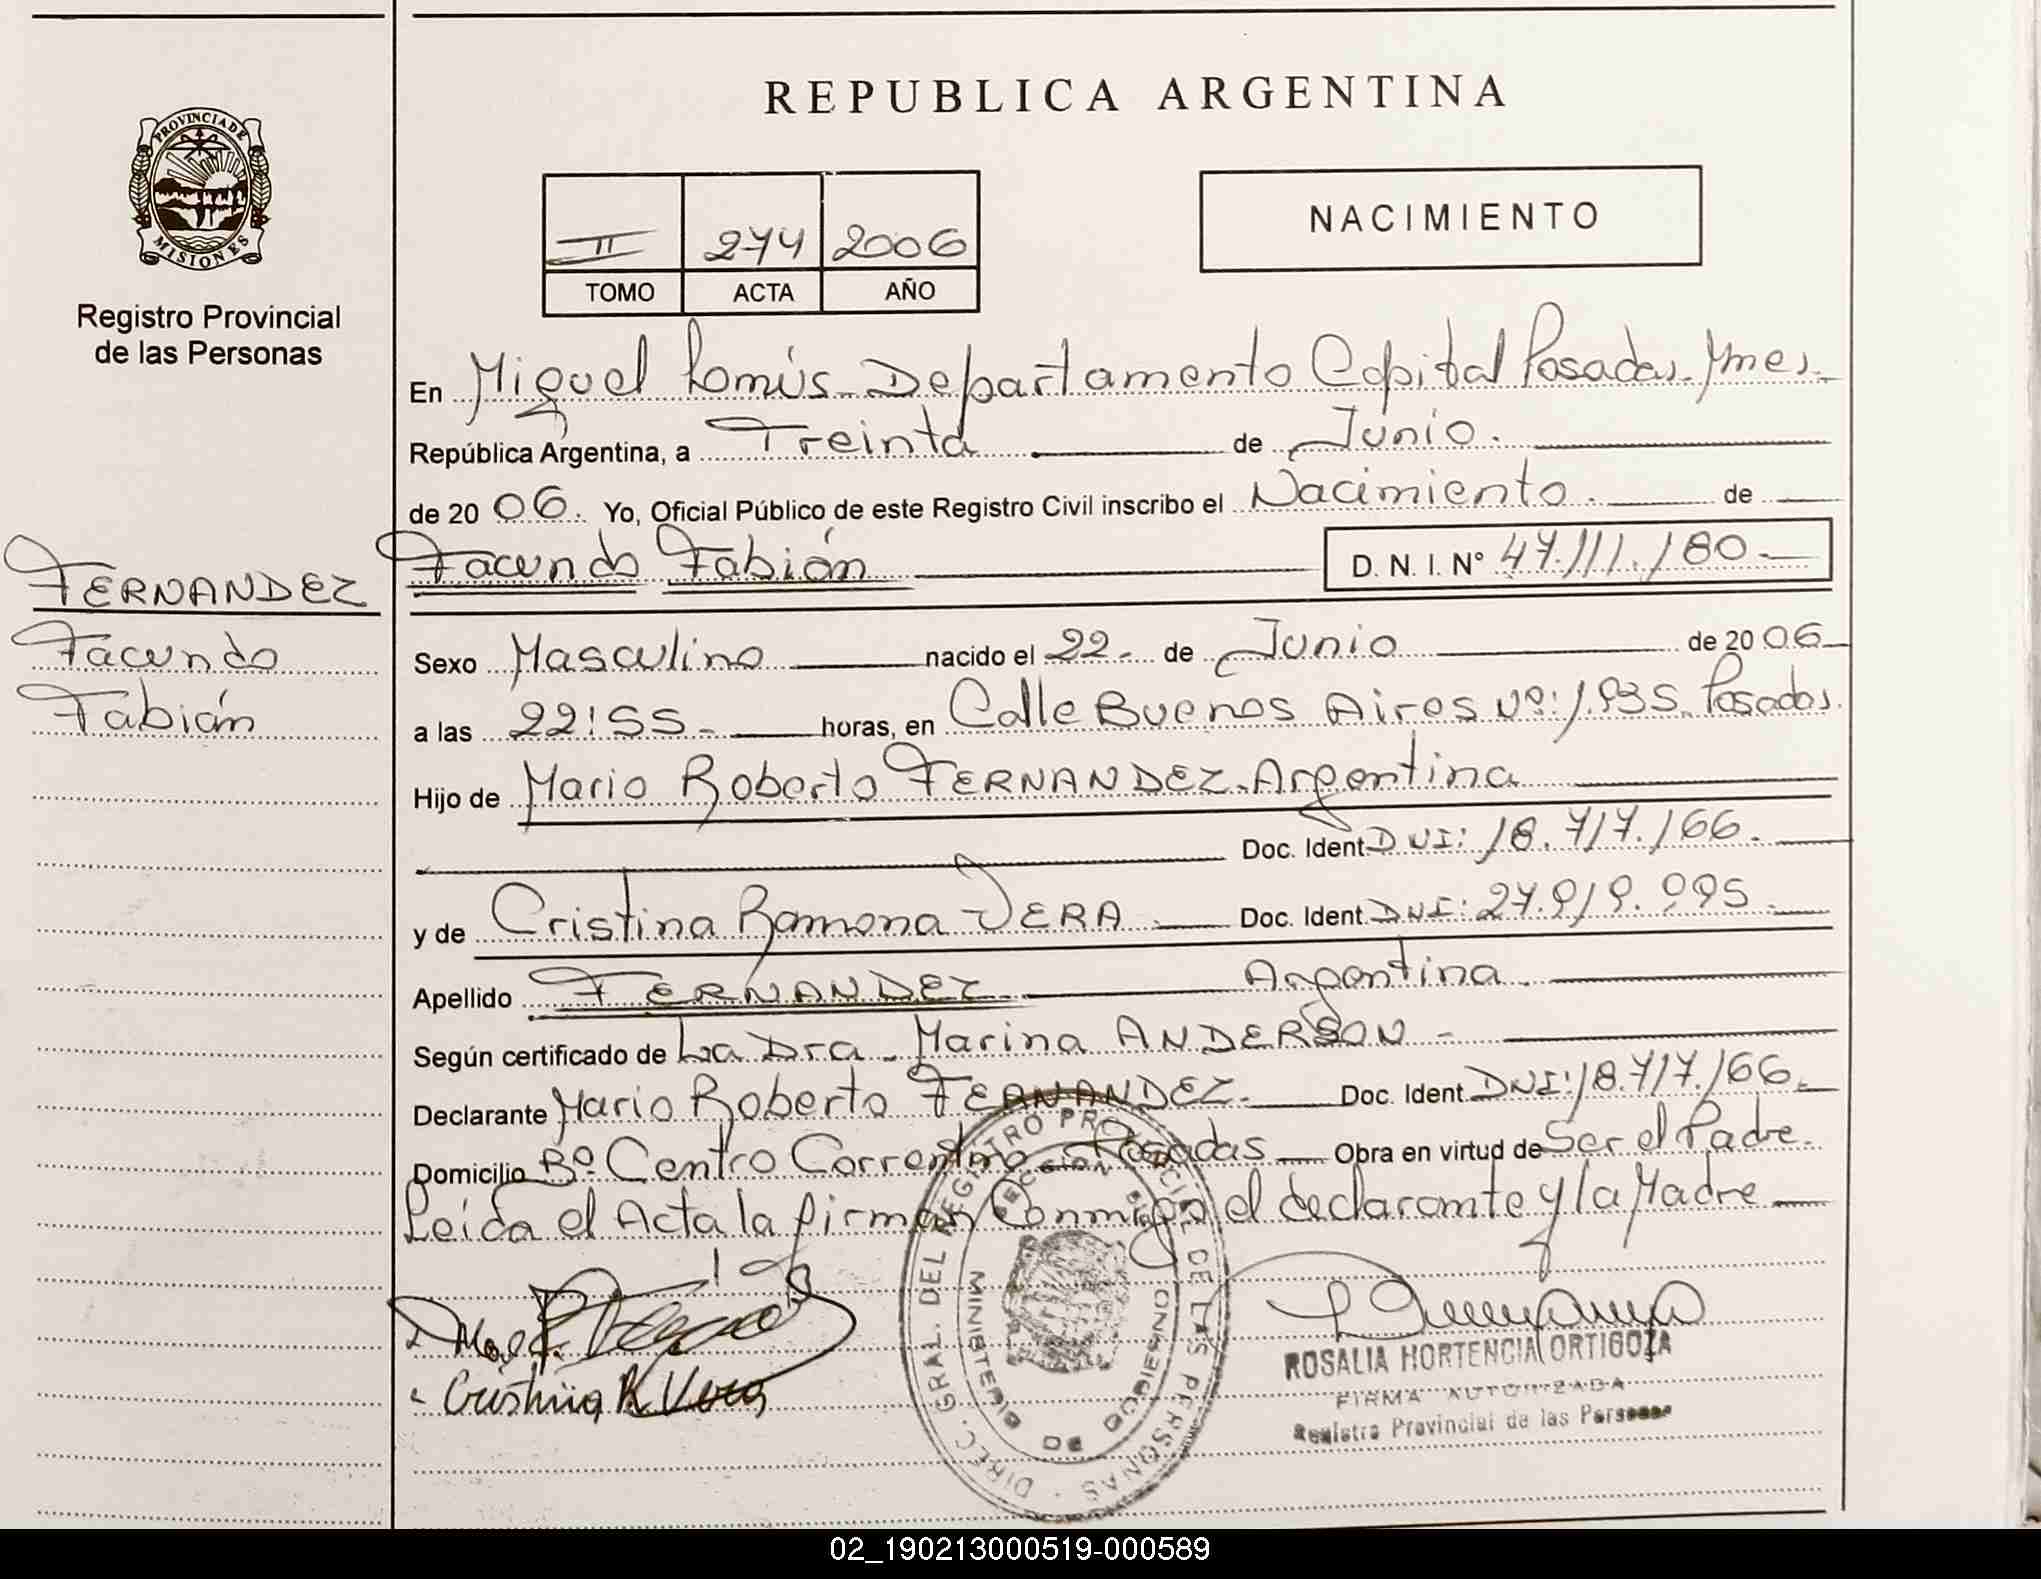 PROVINCIA DE
MISIONES
Registro Provincial
de las Personas
FERNANDEZ
Facundo
Fabián
REPUBLICA ARGENTINA
II 274 2006
TOMO ACTA AÑO
NACIMIENTO
En Miguel Lanús - Departamento Capital Posadas. Mnes.
República Argentina, a Treinta de Junio.
de 20 06. Yo, Oficial Público de este Registro Civil inscribo el Nacimiento. de
Facundo Fabián D. N. I. Nº 47.111.180
Sexo Masculino nacido el 22 - de Junio de 20 06
a las 22:55 - horas, en Calle Buenos Aires Nº: 1.935 Posadas.
Hijo de Mario Roberto FERNANDEZ - Argentina
Doc. Ident DNI: 18.717.166.
y de Cristina Ramona VERA - Doc. Ident. DNI: 27.919.995
Apellido FERNANDEZ Argentina
Según certificado de La Dra. Marina ANDERSON -
Declarante Mario Roberto FERNANDEZ. Doc. Ident. DNI: 18.717.166
Domicilio Bº. Centro Correntino - Posadas Obra en virtud de Ser el Padre.
Leída el Acta la firman Conmigo el declarante y la Madre
Cristina R Vera
DIREC. GRAL. DEL REGISTRO PROVINCIAL DE LAS PERSONAS
MINISTERIO DE GOBIERNO
ROSALIA HORTENCIA ORTIGOZA
FIRMA AUTORIZADA
Registro Provincial de las Personas
02_190213000519-000589